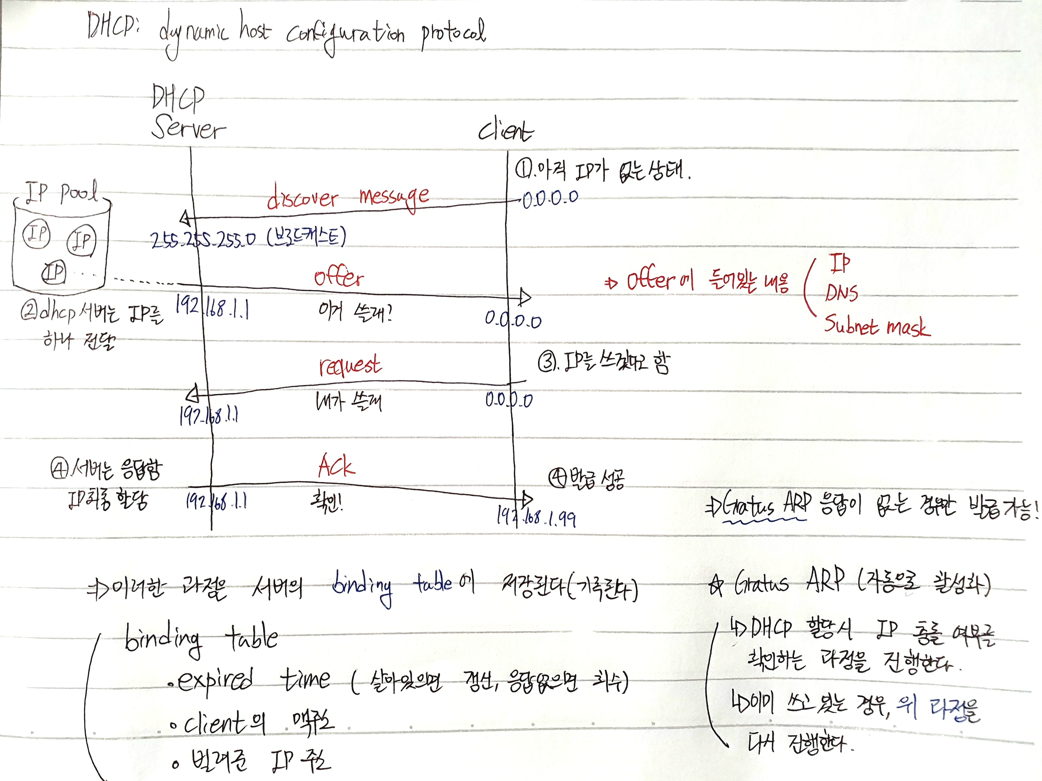 DHCP: dynamic host configuration protocol
DHCP
Server
client
①.아직 IP가 없는 상태.
IP pool
discover message
0.0.0.0
IP
IP
IP
255.255.255.0 (브로드캐스트)
offer
⇒ offer에 들어있는 내용
IP
DNS
Subnet mask
②dhcp 서버는 IP를
하나 전달
192.168.1.1
이거 쓸래?
0.0.0.0
request
③. IP를 쓰겠다고 함
192.168.1.1
내가 쓸래
0.0.0.0
④서버는 응답함
IP 할당
Ack
④발급 성공
192.168.1.1
확인!
192.168.1.99
⇒Gratus ARP 응답이 없는 경우만 발급가능!
⇒이러한 과정은 서버의 binding table에 저장된다(기록된다)
binding table
•expired time ( 살아있으면 갱신, 응답없으면 회수)
•client의 맥주소
•빌려준 IP 주소
☆ Gratus ARP (자동으로 활성화)
↳DHCP 할당시 IP 충돌 여부를
확인하는 과정을 진행한다.
↳이미 쓰고 있는 경우, 위 과정을
다시 진행한다.